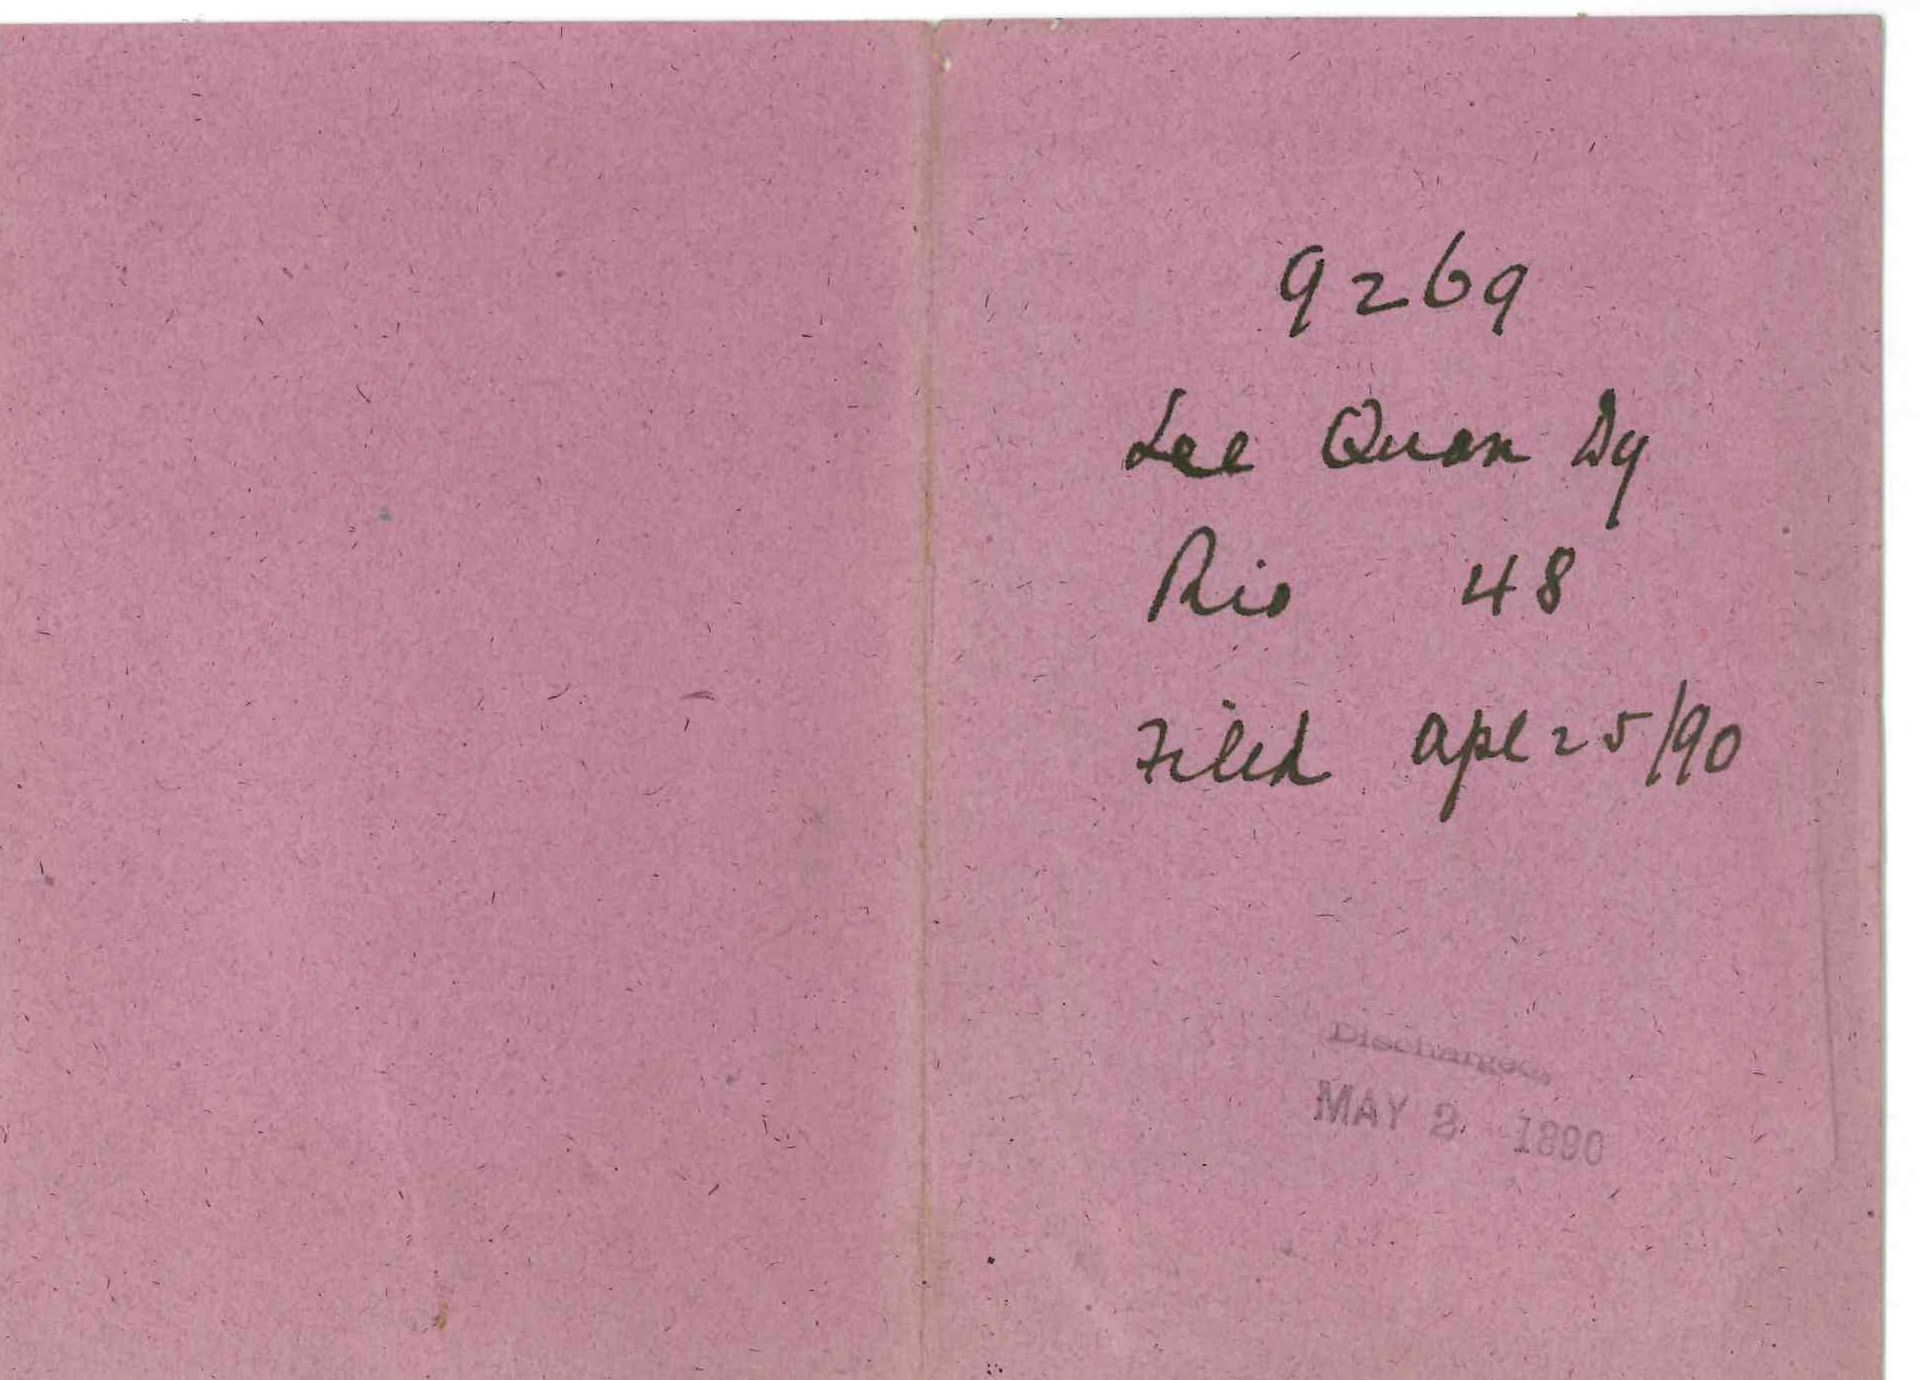 9269
Lee Quan Dy
Rio 48
Filed Apl 25/90
Discharged,
MAY 2 1890